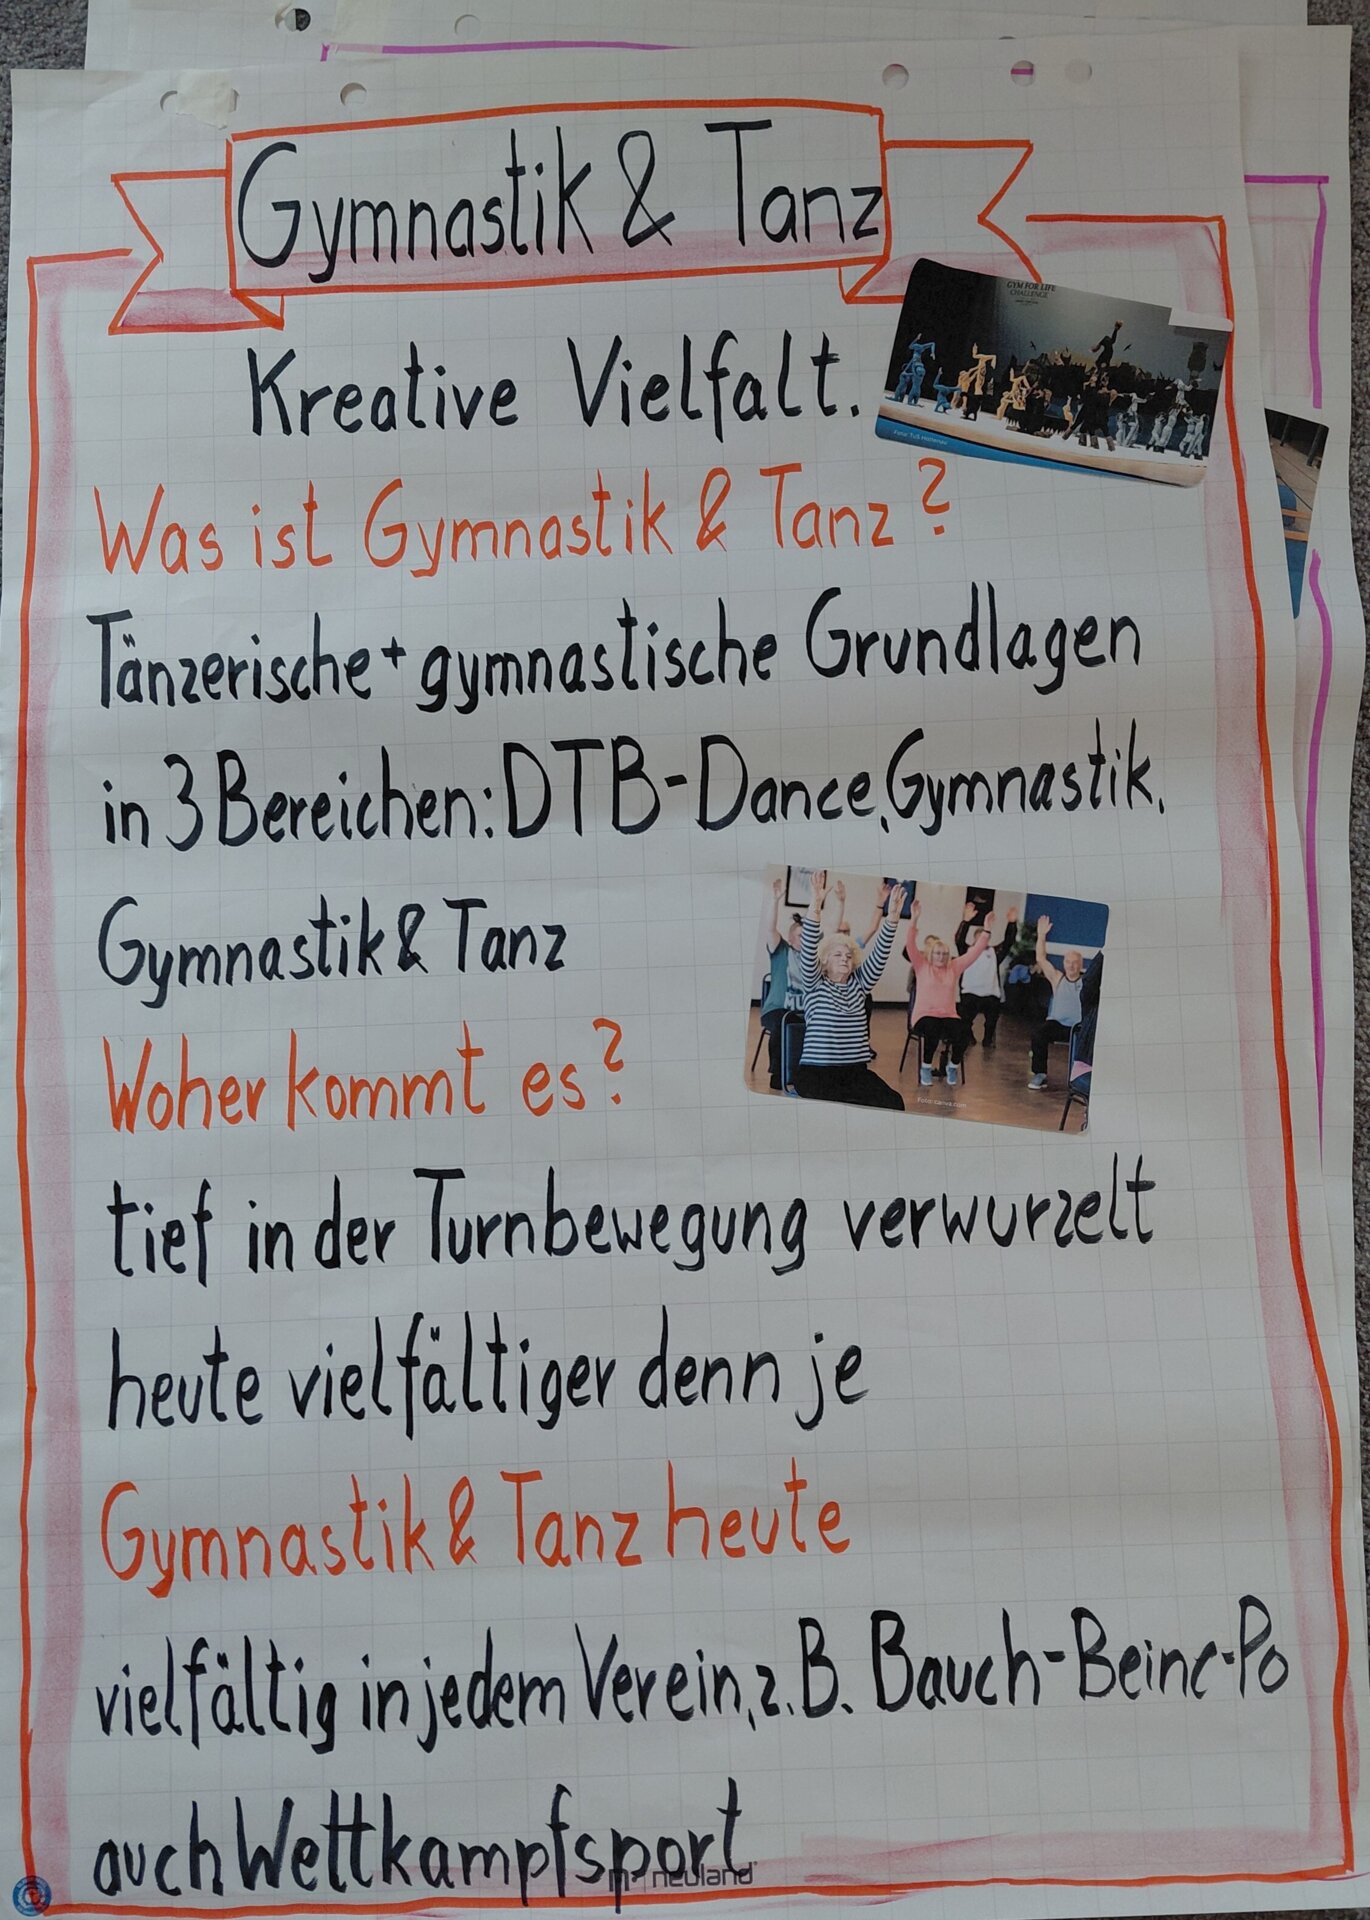 Gymnastik & Tanz
GYM FOR LIFE
CHALLENGE
Kreative Vielfalt.
Was ist Gymnastik & Tanz?
Tänzerische + gymnastische Grundlagen
in 3 Bereichen: DTB-Dance, Gymnastik,
Gymnastik & Tanz
Foto: canva.com
Woher kommt es?
tief in der Turnbewegung verwurzelt
heute vielfältiger denn je
Gymnastik & Tanz heute
vielfältig in jedem Verein, z.B. Bauch-Beine-Po
auch Wettkampfsport
neuland